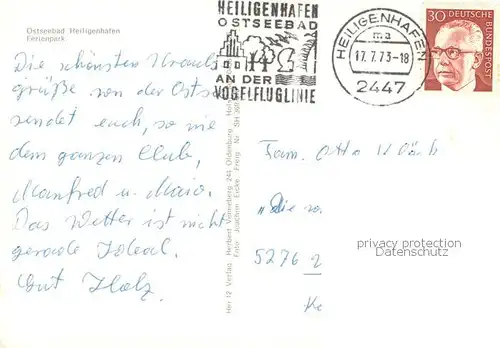 Ostseebad Heiligenhafen
Ferienpark
Die schönsten Urlaubs
grüße von der Ostsee
sendet euch, so wie
dem ganzen Club,
Manfred u.
Das Wetter ist nicht
gerade Ideal.
Gut Holz
HEILIGENHAFEN
OSTSEEBAD
AN DER
VOGELFLUGLINIE
HEILIGENHAFEN
ma
17.7.73-18
2447
30 DEUTSCHE
BUNDESPOST
Her 12 Verlag Herbert Vanselberg 244 Oldenburg
Foto: Joachim Encke
Fam. Otto
"Die
5276
privacy protection
Datenschutz